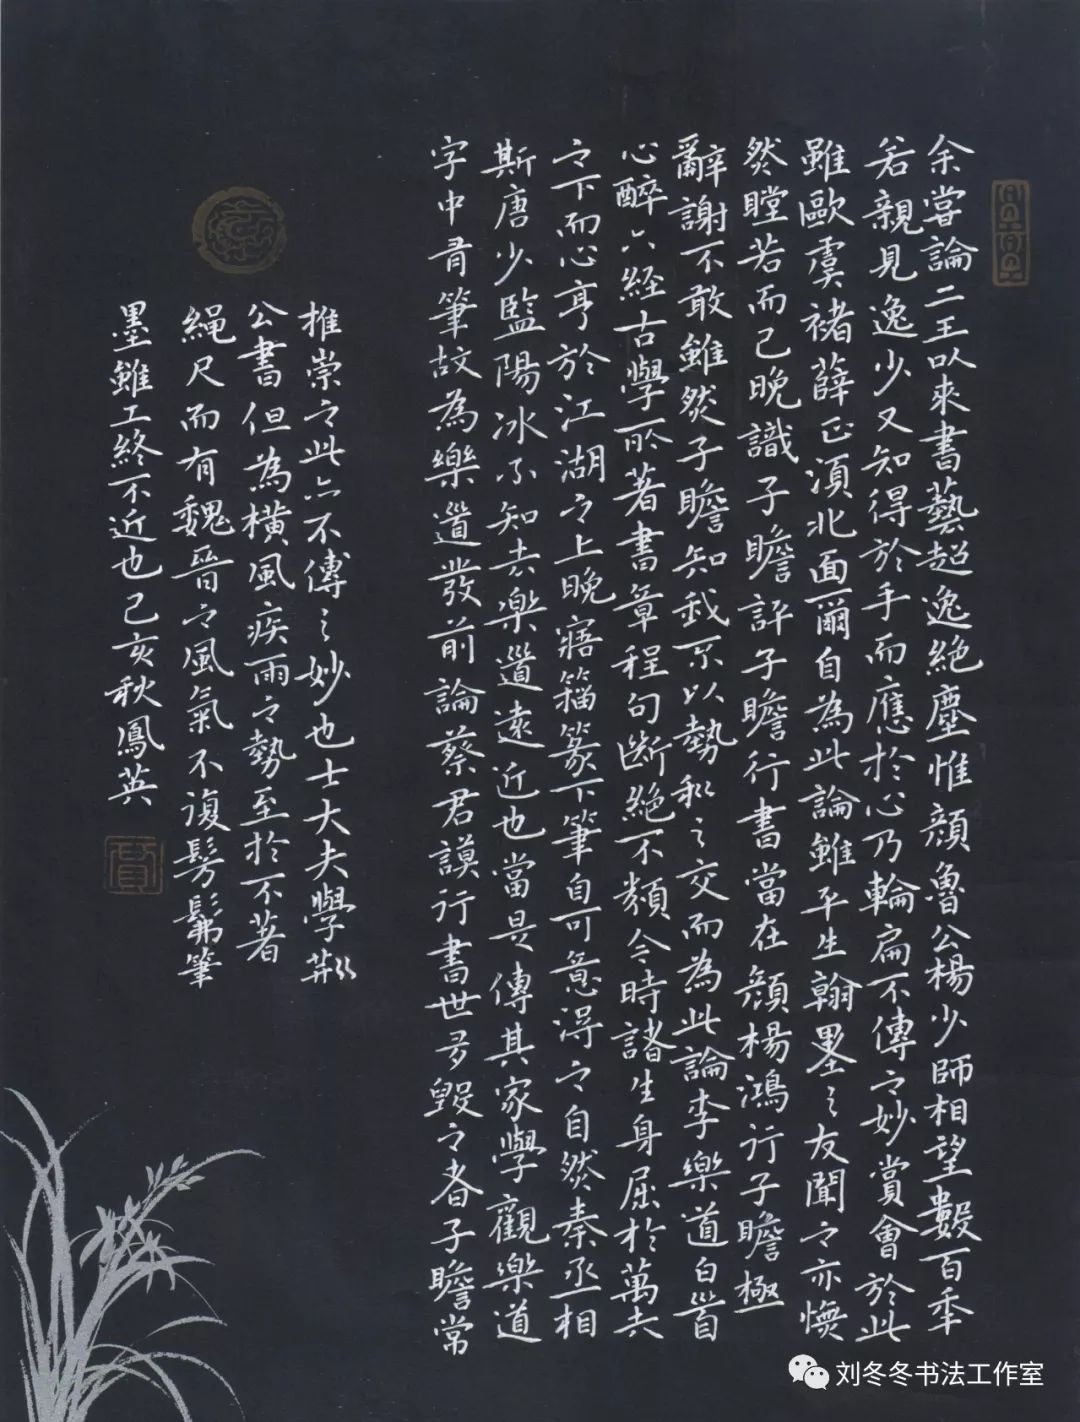 余嘗論二王以來書藝超逸絕塵惟顏魯公楊少師相望數百年
若親見逸少又知得於手而應於心乃輪扁不傳之妙賞會於此
雖歐虞褚薛正須北面爾自為此論雖平生翰墨之友聞之亦憮
然瞠若而已晚識子瞻評子瞻行書當在顏楊鴻行子瞻極
辭謝不敢雖然子瞻知我不以勢利之交而為此論李樂道白首
心醉六經古學所著書章程句斷絕不類今時諸生身屈於萬夫
之下而心亨於江湖之上晚寤籀篆下筆自可意得之自然秦丞相
斯唐少監陽冰不知去樂道遠近也當是傳其家學觀樂道
字中有筆故為樂道發前論蔡君謨行書世多毀之者子瞻常
推崇之此亦不傳之妙也士大夫學荊
公書但為橫風疾雨之勢至於不著
繩尺而有魏晉之風氣不復髣髴筆
墨雖工終不近也己亥秋鳳英
刘冬冬书法工作室